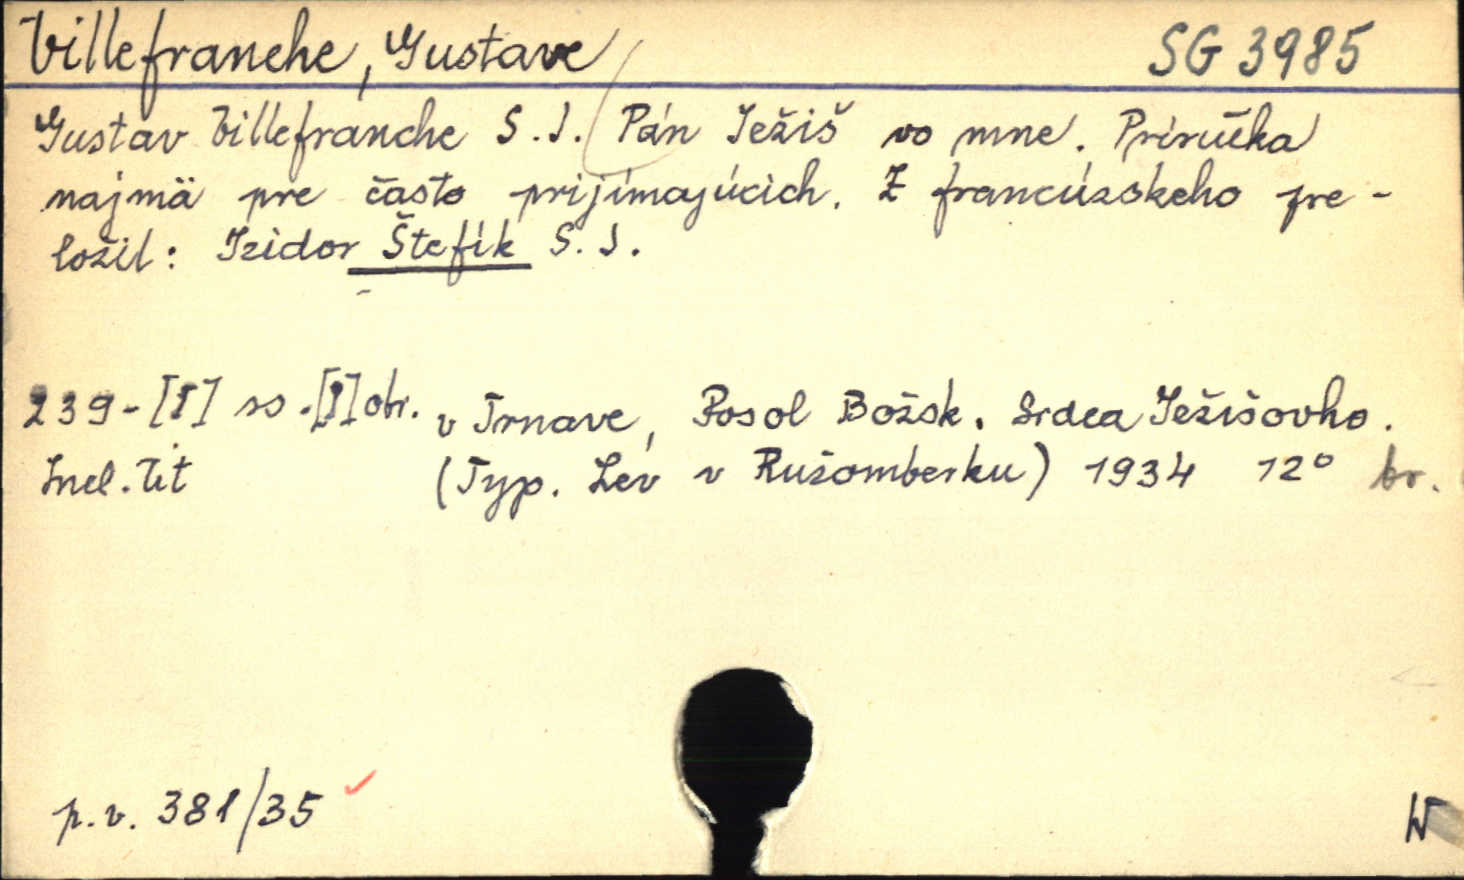 Villefranche, Gustave SG 3985
Gustav Villefranche S.J. Pán Ježiš vo mne. Príručka
najmä pre často prijímajúcich. Z francúzskeho pre-
ložil: Izidor Štefík S.J.
239-[I] ss.[I]obr. v Trnave, Posol Božsk. Srdca Ježišovho.
Incl. tit (Typ. Lev v Ružomberku) 1934 12° br.
p.v. 381/35
W